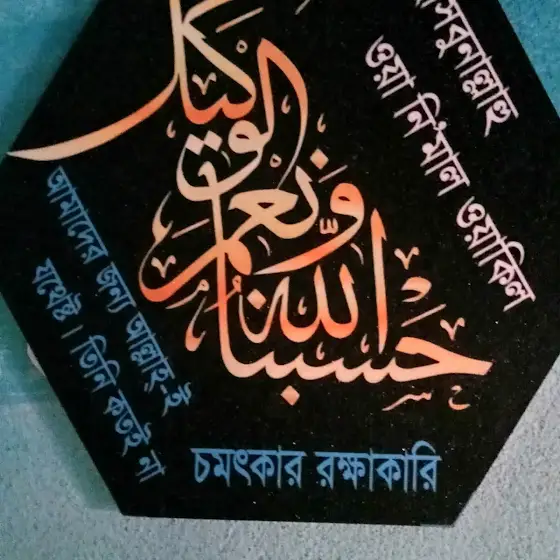 حسبنا الله
ونعم
الوكيل
হাসবুনাল্লাহু
ওয়া নি'মাল ওয়াকিল
আমাদের জন্য আল্লাহ্-ই
যথেষ্ট। তিনি কতই না
চমৎকার রক্ষাকারি